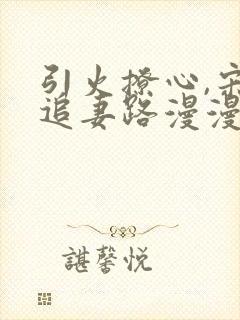 引火撩心,宋
追妻路漫漫
諶馨悦